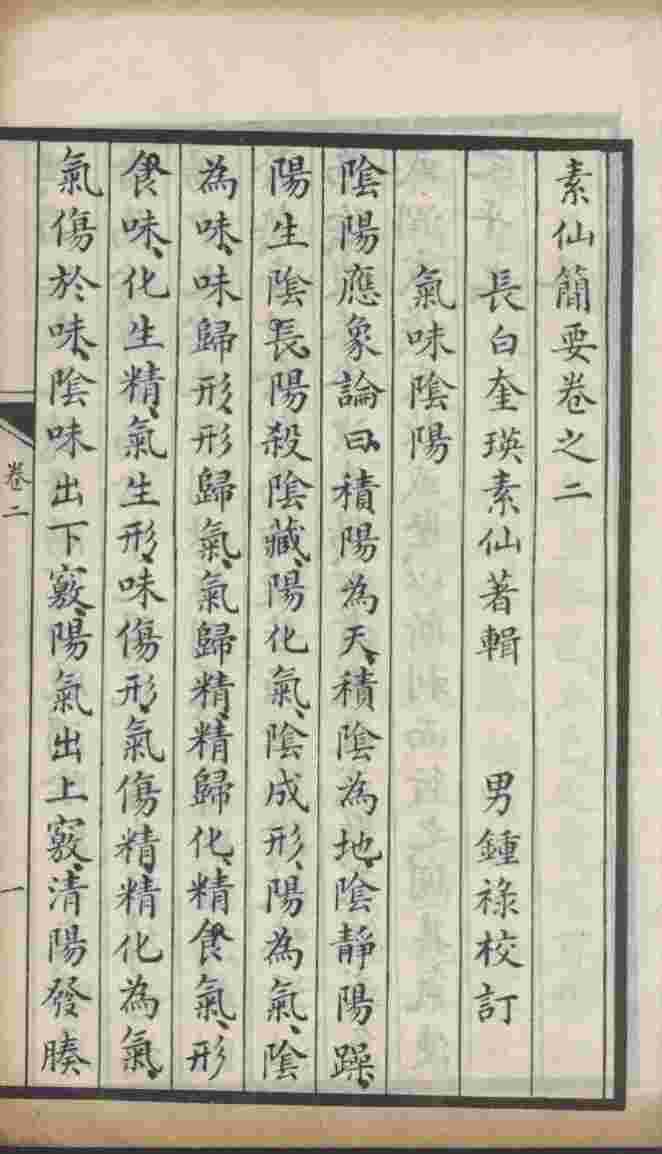 素仙簡要卷之二
長白奎瑛素仙著輯　男鍾祿校訂
氣味陰陽
陰陽應象論曰積陽為天、積陰為地、陰靜陽躁、
陽生陰長、陽殺陰藏、陽化氣、陰成形、陽為氣、陰
為味、味歸形、形歸氣、氣歸精、精歸化、精食氣、形
食味、化生精、氣生形、味傷形、氣傷精、精化為氣、
氣傷於味、陰味出下竅、陽氣出上竅、清陽發腠
卷二
一